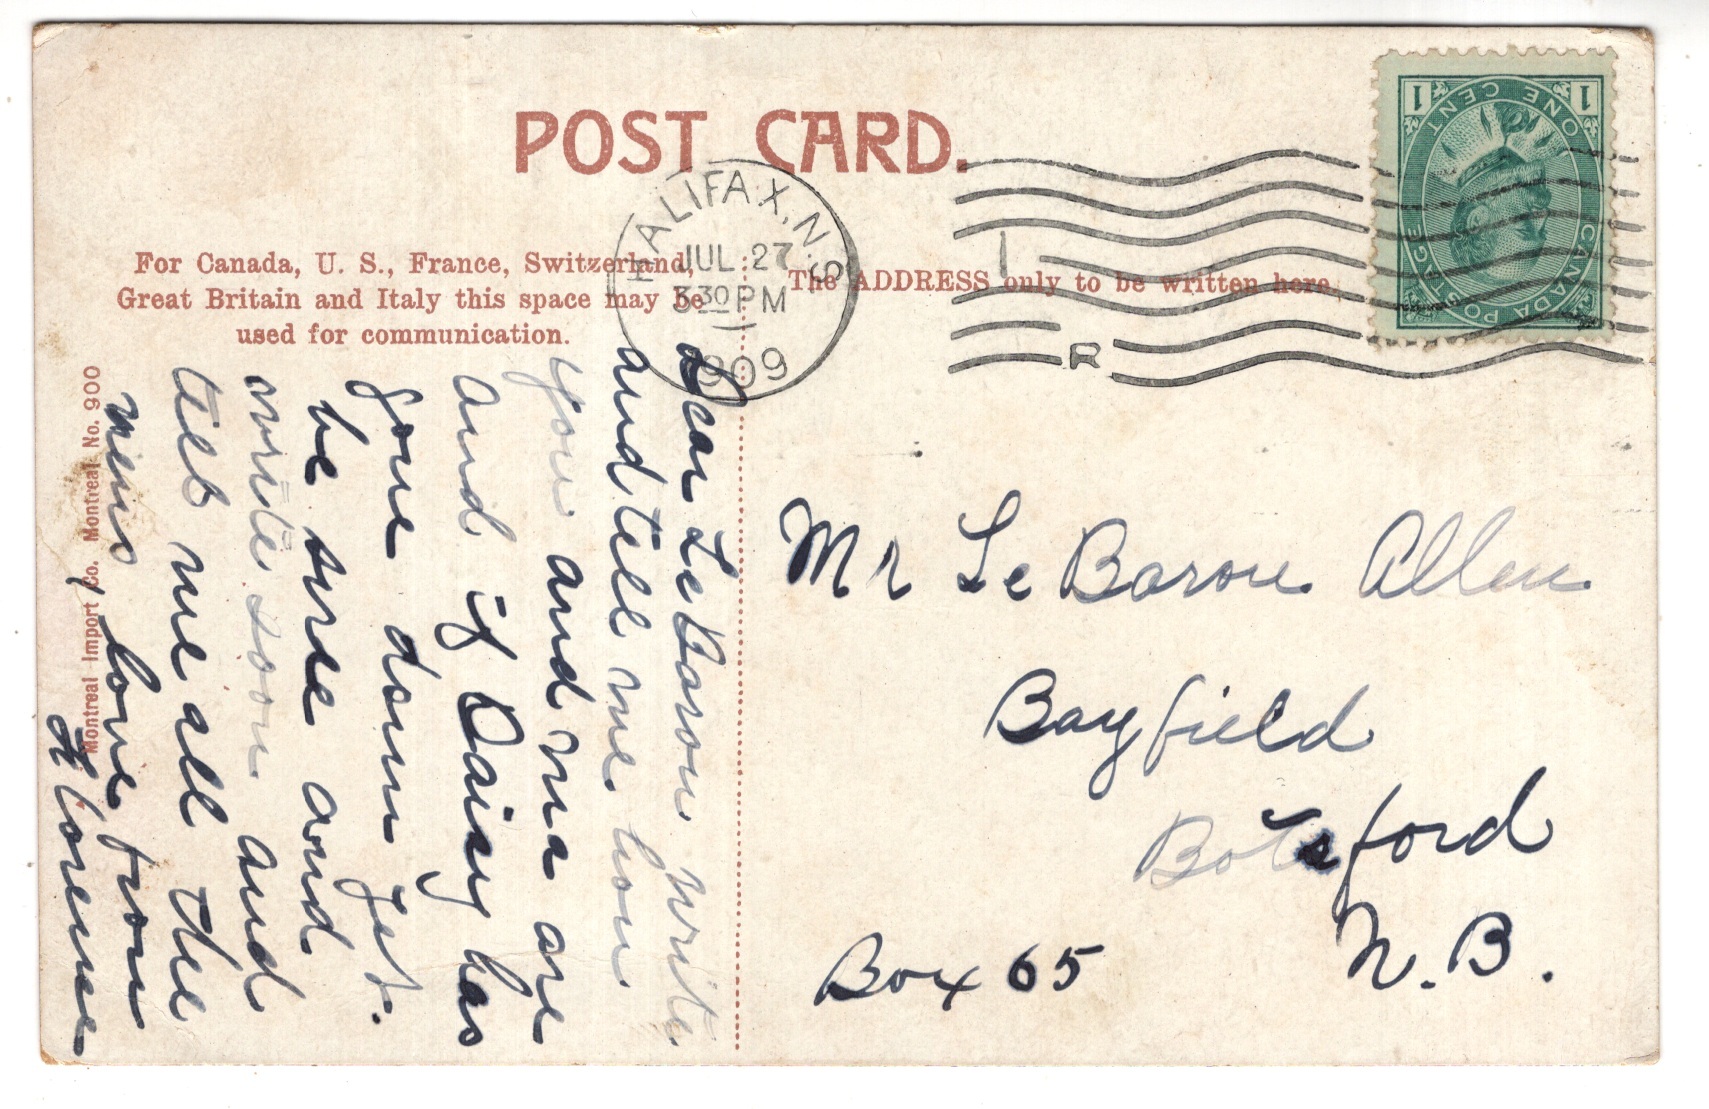 POST CARD.
For Canada, U. S., France, Switzerland,
Great Britain and Italy this space may be
used for communication.
The ADDRESS only to be written here.
HALIFAX, N.S.
JUL 27
330 PM
1909
R
CANADA POSTAGE
ONE CENT
1 1
Dear LeBaron write
and tell me how
you and ma are
and if Daisy has
gone down yet.
be sure and
write soon and
tell me all the
news, love from
Florence
Mr Le Baron Allen
Bayfield
Botsford
N.B.
Box 65
Montreal Import Co. Montreal No. 900